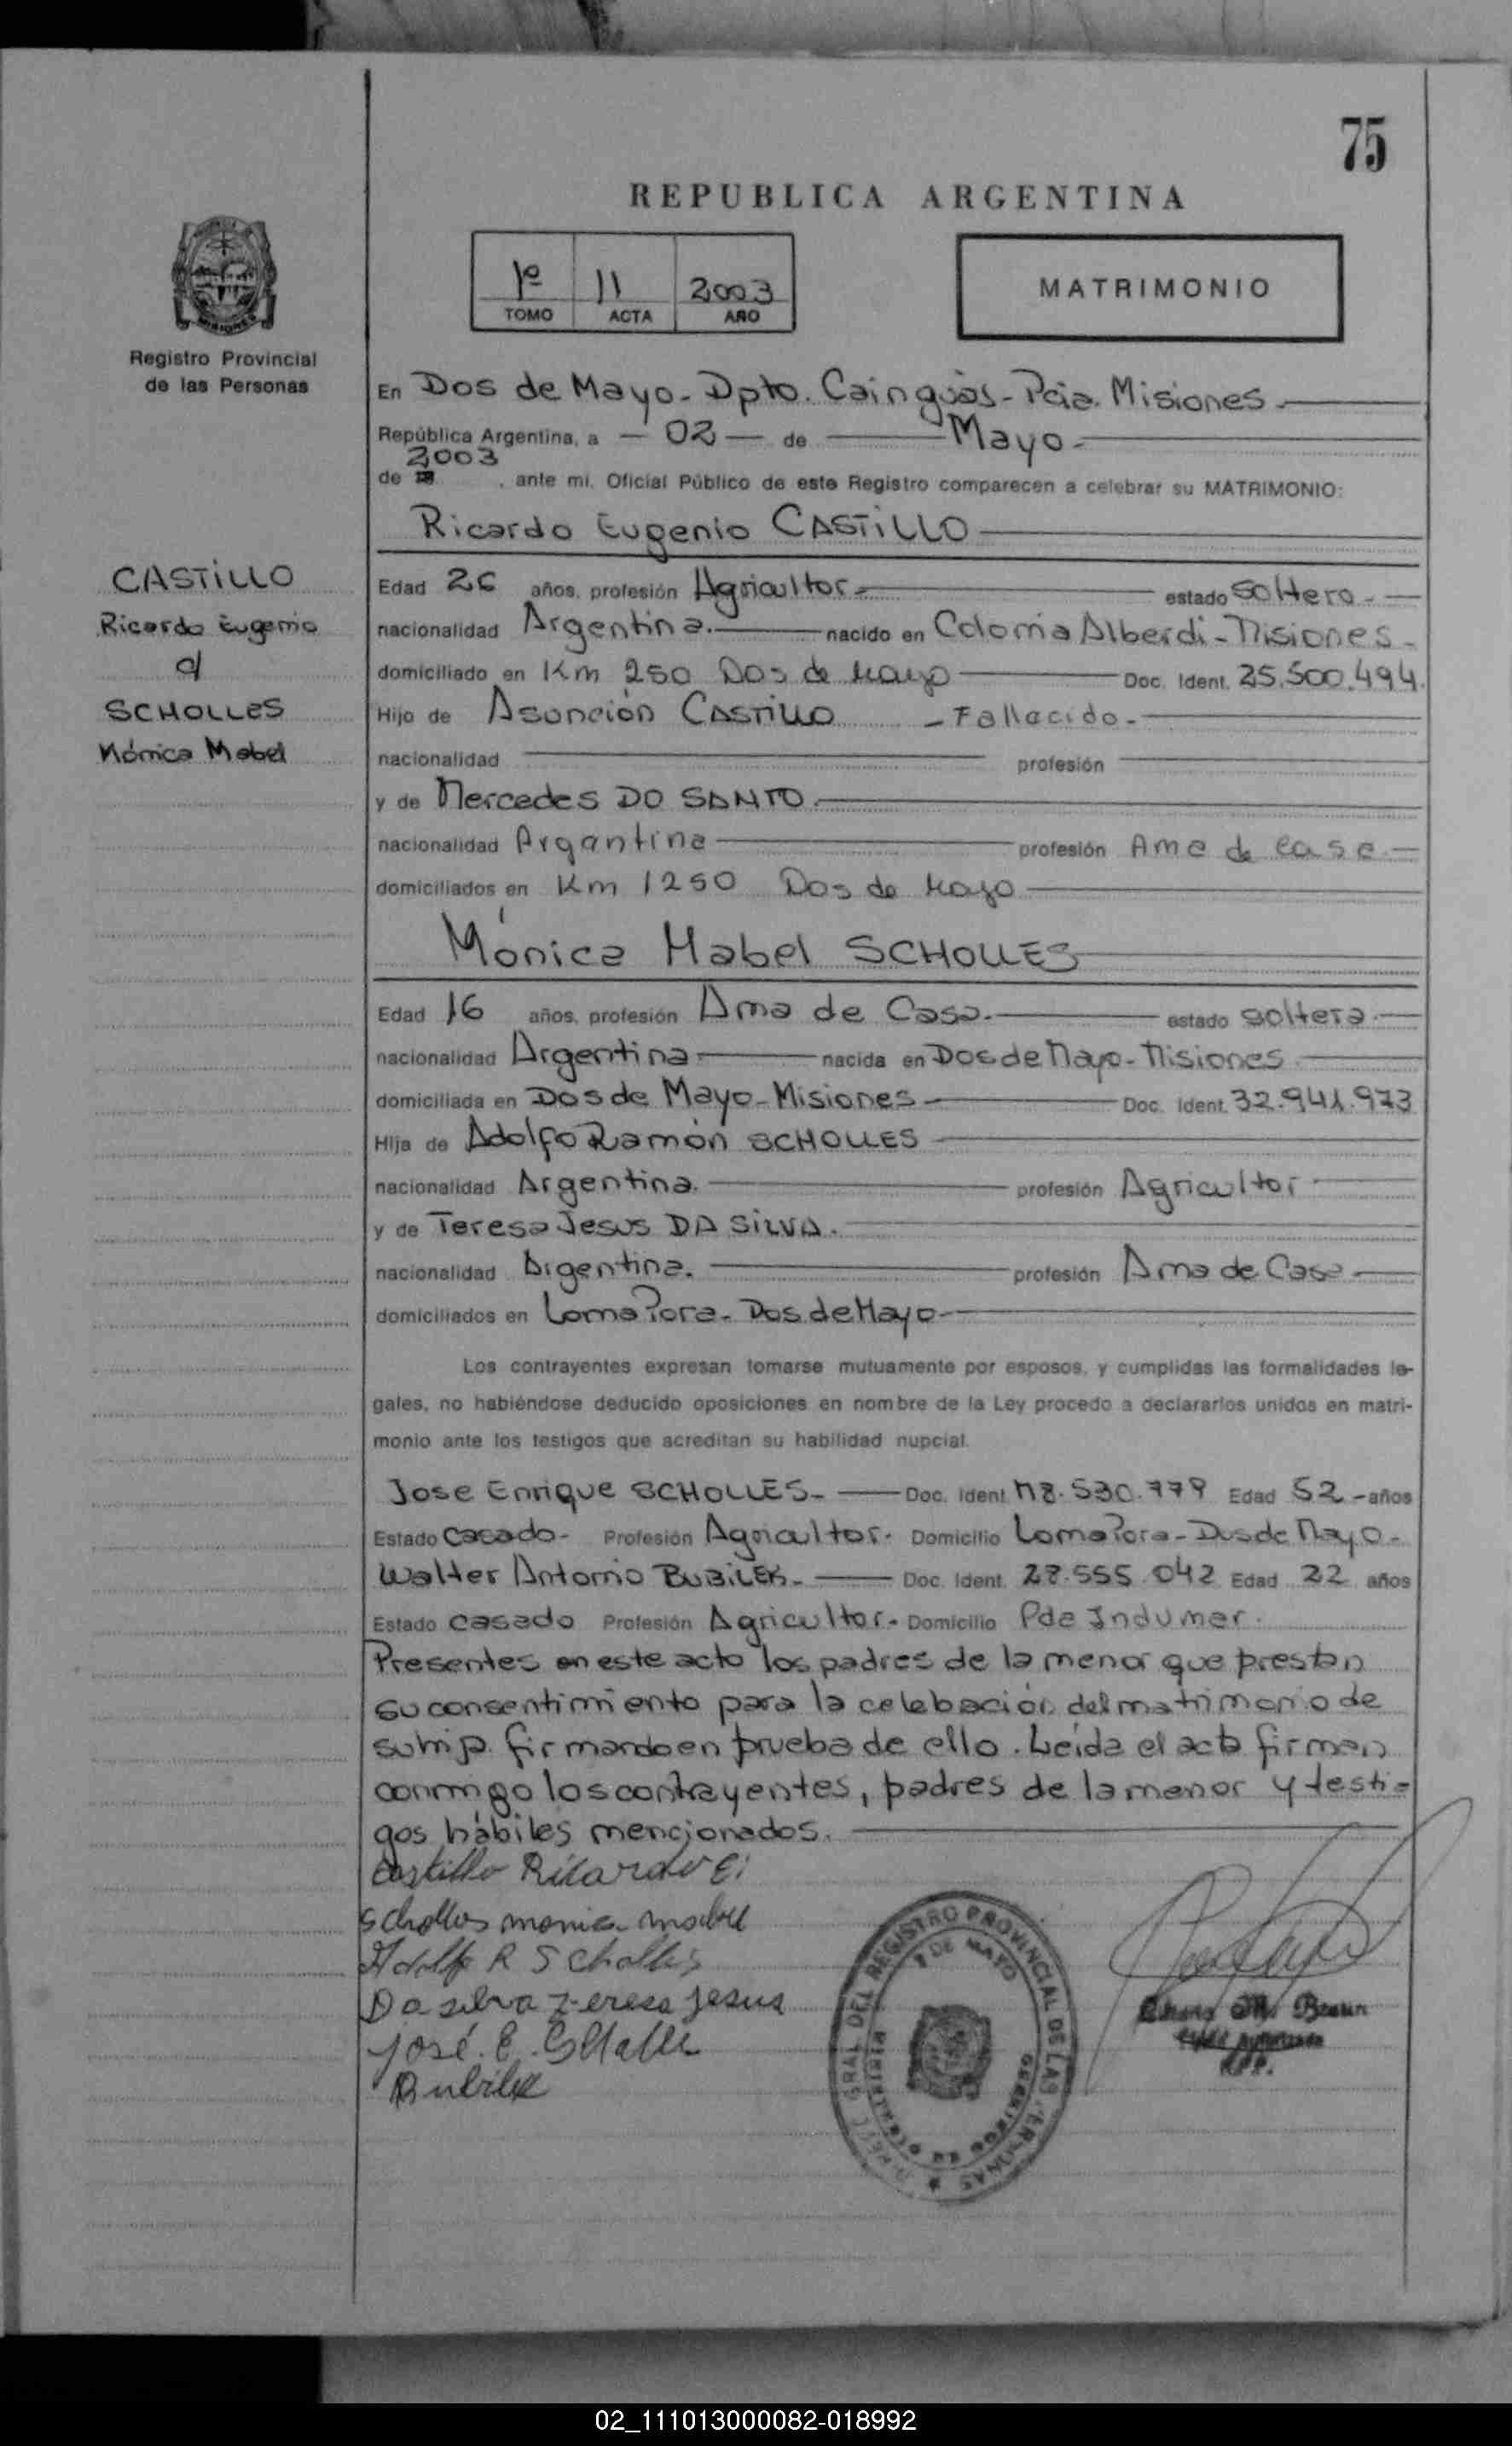 75
REPUBLICA ARGENTINA
1º 11 2003
TOMO ACTA AÑO
MATRIMONIO
MISIONES
Registro Provincial
de las Personas
En Dos de Mayo - Dpto. Cainguàs - Pcia. Misiones
República Argentina, a 02 de Mayo
2003
de 19 , ante mi, Oficial Público de este Registro comparecen a celebrar su MATRIMONIO:
Ricardo Eugenio CASTILLO
CASTILLO
Ricardo Eugenio
c/
SCHOLLES
Mónica Mabel
Edad 26 años, profesión Agricultor estado Soltero
nacionalidad Argentina. nacido en Colonia Alberdi - Misiones
domiciliado en Km 250 Dos de Mayo Doc. Ident. 25.500.494
Hijo de Asunción CASTILLO - Fallacido -
nacionalidad profesión
y de Mercedes DO SANTO
nacionalidad Argantina profesión Ama de casa
domiciliados en Km 1250 Dos de Mayo
Mónica Mabel SCHOLLES
Edad 16 años, profesión Ama de Casa. estado soltera
nacionalidad Argentina nacida en Dos de Mayo - Misiones
domiciliada en Dos de Mayo - Misiones Doc. Ident. 32.941.973
Hija de Adolfo Ramón SCHOLLES
nacionalidad Argentina. profesión Agricultor
y de Teresa Jesus DA SILVA.
nacionalidad Argentina. profesión Ama de Casa
domiciliados en Loma Pora - Dos de Mayo
Los contrayentes expresan tomarse mutuamente por esposos, y cumplidas las formalidades le-
gales, no habiéndose deducido oposiciones en nombre de la Ley procedo a declararlos unidos en matri-
monio ante los testigos que acreditan su habilidad nupcial.
Jose Enrique SCHOLLES - Doc. Ident. M8.530.779 Edad 52 - años
Estado Casado - Profesión Agricultor - Domicilio Loma Pora - Dos de Mayo -
Walter Antonio BUBILEK - Doc. Ident. 28.555.042 Edad 22 años
Estado Casado Profesión Agricultor - Domicilio Pda Indumar.
Presentes en este acto los padres de la menor que prestan
su consentimiento para la celebación del matrimonio de
su hija firmando en prueba de ello. Leída el acta firman
conmigo los contrayentes, padres de la menor y testi=
gos hábiles mencionados.
Castillo Ricardo E.
Scholles monica mabel
Adolfo R Scholles
Da silva Teresa Jesus
José. E. Scholles
Bubilek
GRAL DEL REGISTRO PROVINCIAL DE LAS PERSONAS
2 DE MAYO
Braun
02_111013000082-018992